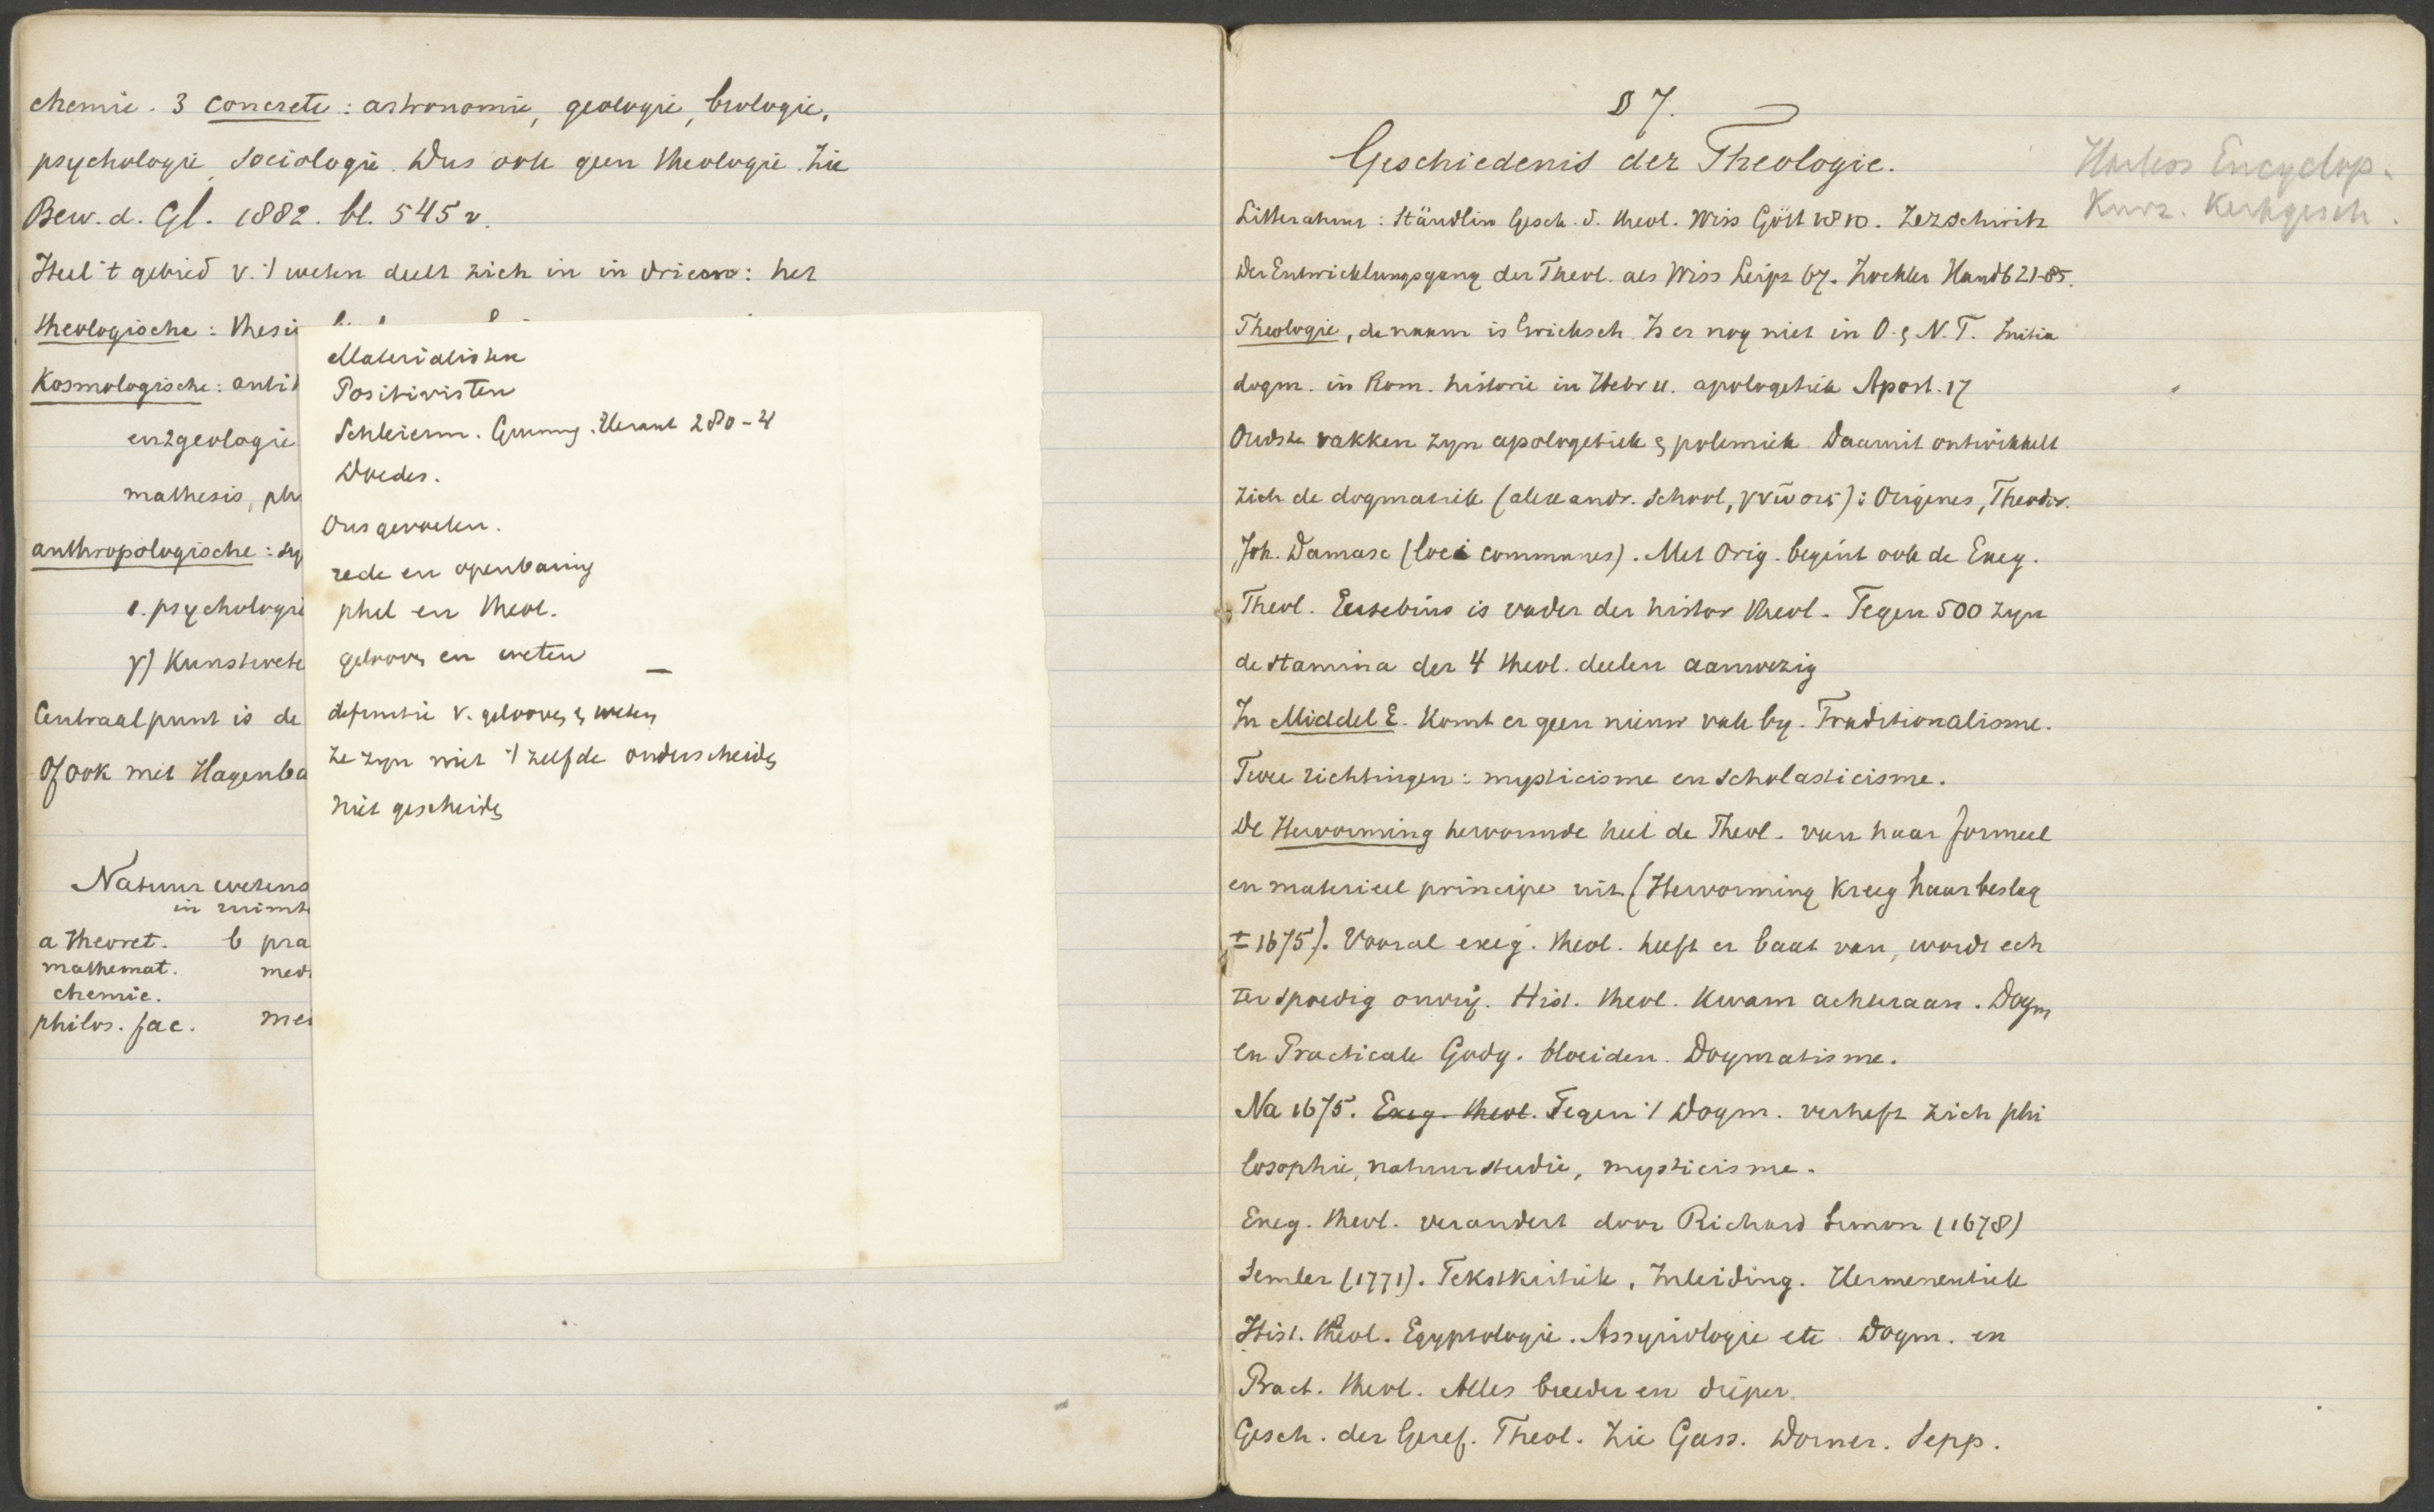 chemie. 3 concrete: astronomie, geologie, biologie,
psychologie, sociologie. Dus ook geen theologie. Zie
Bew. d. Gl. 1882. bl. 545 v.
Heel 't gebied v. 't weten deelt zich in in drieën: het
theologische: thesis
Kosmologische: antit
en geologie
mathesis, ph
anthropologische: sy
psychologie
γ) Kunstwete
Centraalpunt is de
Of ook met Hagenba
Natuur wetens
in ruimt
a theoret. b pra
mathemat. med
chemie.
philos. fac. mei
Materialisten
Positivisten
Schleierm. Gunning. Heraut 280-4
Doedes.
Ons gevoelen.
rede en openbaring
phil en theol.
gelooven en weten
definitie v. gelooven & weten
Ze zyn niet 't zelfde onderscheiden
niet gescheiden
§ 7.
Geschiedenis der Theologie.
Harless Encyclop.
Kurz. Kerkgesch.
Litteratuur: Ständlin Gesch. d. theol. Wiss Gött 1810. Zezschwitz
Der Entwicklungsgang der Theol. als Wiss Leipz 67. Zockler Handb 21-85.
Theologie, de naam is Grieksch. Is er nog niet in O. & N.T. Initia
dogm. in Rom. historie in Hebr 11. apologetiek Apost. 17
Oudste vakken zyn apologetiek & polemiek. Daarnit ontwikkelt
zich de dogmatiek (alexandr. school, γνῶσις): Origenes, Theodor.
Joh. Damasc (loci communes). Met Orig. begint ook de Exeg.
Theol. Eusebius is vader der histor theol. Tegen 500 zyn
de stamina der 4 theol. deelen aanwezig
In Middel E. Komt er geen nieuw vak by. Traditionalisme.
Twee richtingen: mysticisme en scholasticisme.
De Hervorming hervormde heel de Theol. van haar formeel
en materieel principe uit (Hervorming Kreeg haar beslag
± 1675). Vooral exeg. theol. heeft er baat van, wordt ech
ter spoedig onvrij. Hist. theol. Kwam achteraan. Dogm
en Practicale Godg. bloeiden. Dogmatisme.
Na 1675. Exeg. theol. Tegen 't Dogm. verheft zich phi
losophie, natuurstudie, mysticisme.
Exeg. theol. verandert door Richard Simon (1678)
Semler (1771). Tekstkritiek, Inleiding. Hermeneutiek
Hist. theol. Egyptologie. Assyriologie etc Dogm. en
Pract. theol. Alles breeder en dieper.
Gesch. der Geref. Theol. Zie Gass. Dorner. Sepp.